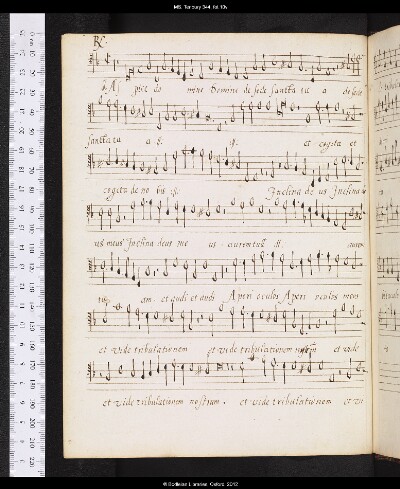 MS. Tenbury 344, fol. 13v
Aspice domine Domine de sede sancta tu a de sede
sancta tu a ij. ij. et cogita et
cogita de no bis ij. Inclina de us Inclina de
us meus Inclina deus me us aurem tuã ij. aurem
tuã am. et audi et audi Aperi oculos Aperi oculos tuos
et vide tribulationem et vide tribulationem nostram et vide
et vide tribulationem nostram. et vide tribulationem et vi
© Bodleian Libraries, Oxford, 2012